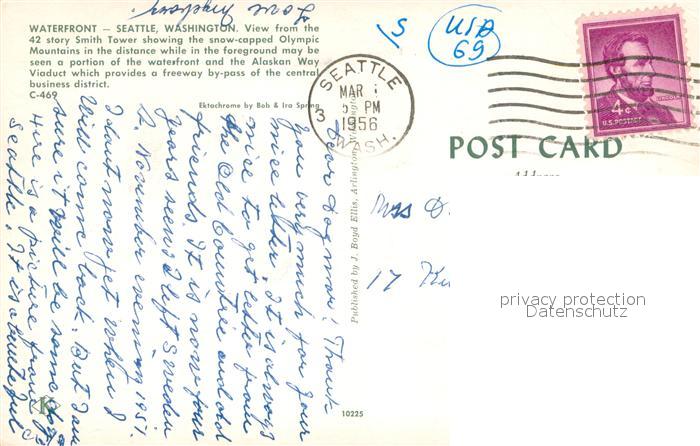 Love
WATERFRONT — SEATTLE, WASHINGTON. View from the
42 story Smith Tower showing the snow-capped Olympic
Mountains in the distance while in the foreground may be
seen a portion of the waterfront and the Alaskan Way
Viaduct which provides a freeway by-pass of the central
business district.
C-469
Ektachrome by Bob & Ira Spring
S
USA
69
SEATTLE
MAR
5 PM
1956
WASH.
3
4¢
U.S. POSTAGE
LINCOLN
POST CARD
Address
Dear Dagmar! Thank
you very much for your
nice letter. It is always
nice to get letter from
the Old Countree and old
friends. It is now four
years sen I left Sweden
2. November evening 1951.
I dont now jet when I
will come back. But I am
sure it will be some day.
Here is a picture from
Seattle. It is a beautiful
Published by J. Boyd Ellis, Arlington, Washington
Miss D
17
K
10225
privacy protection
Datenschutz